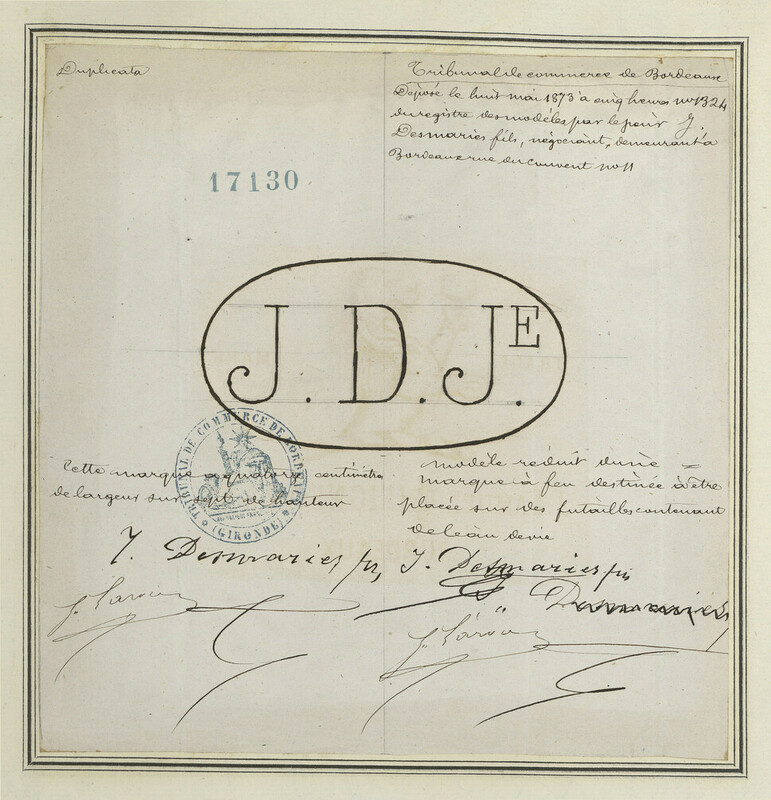 Duplicata
Tribunal de commerce de Bordeaux
Déposé le huit mai 1873 à cinq heures no 1324
du registre des modèles par le sieur J.
Desmaries fils, négociant, demeurant à
Bordeaux rue du couvent no 11
17130
J. D. JE.
TRIBUNAL DE COMMERCE DE BORDEAUX
(GIRONDE)
Cette marque a quatorze centimètre
de largeur sur sept de hauteur
modèle réduit d'une
marque à feu destinée à être
placée sur des futailles contenant
de l'eau de vie
J. Desmaries fils
J. Desmaries fils
Desmaries